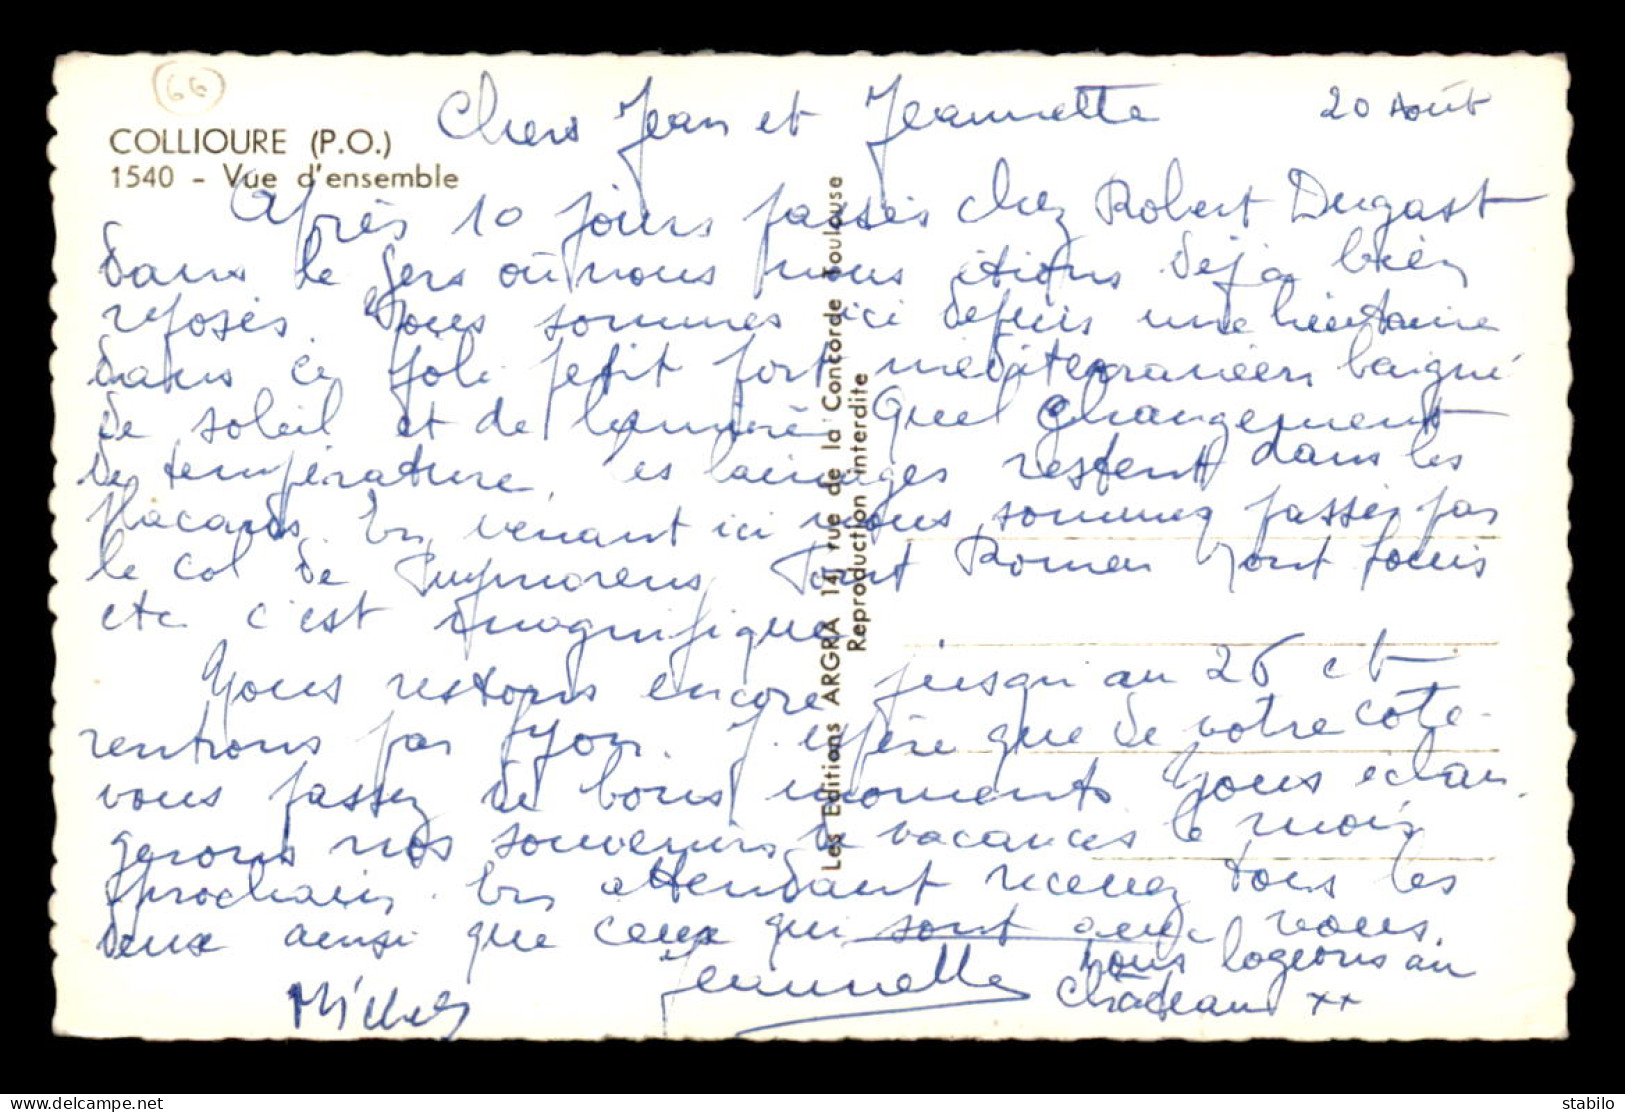 66
COLLIOURE (P.O.)
1540 - Vue d'ensemble
20 Août
Chers Jean et Jeannette
Après 10 jours passés chez Robert Dugast
dans le Gers où nous nous étions déjà bien
reposés. Nous sommes ici depuis une huitaine
dans ce joli petit port méditerranéen baigné
de soleil et de lumière Quel changement
de température, les lainages restent dans les
placards. En venant ici nous sommes passés par
le col de Puymorens, Font Romeu Mont Louis
etc c'est magnifique
Nous restons encore jusqu'au 26 et
rentrons par Lyon. J'espère que de votre côté
vous passez de bons moments Nous échan
gerons nos souvenirs de vacances le mois
prochain. En attendant recevez tous les
deux ainsi que ceux qui sont avec vous
Michel
Jeannette
Nous logeons au
Château xx
Les Editions ARGRA 14, rue de la Concorde Toulouse
Reproduction interdite
stabilo